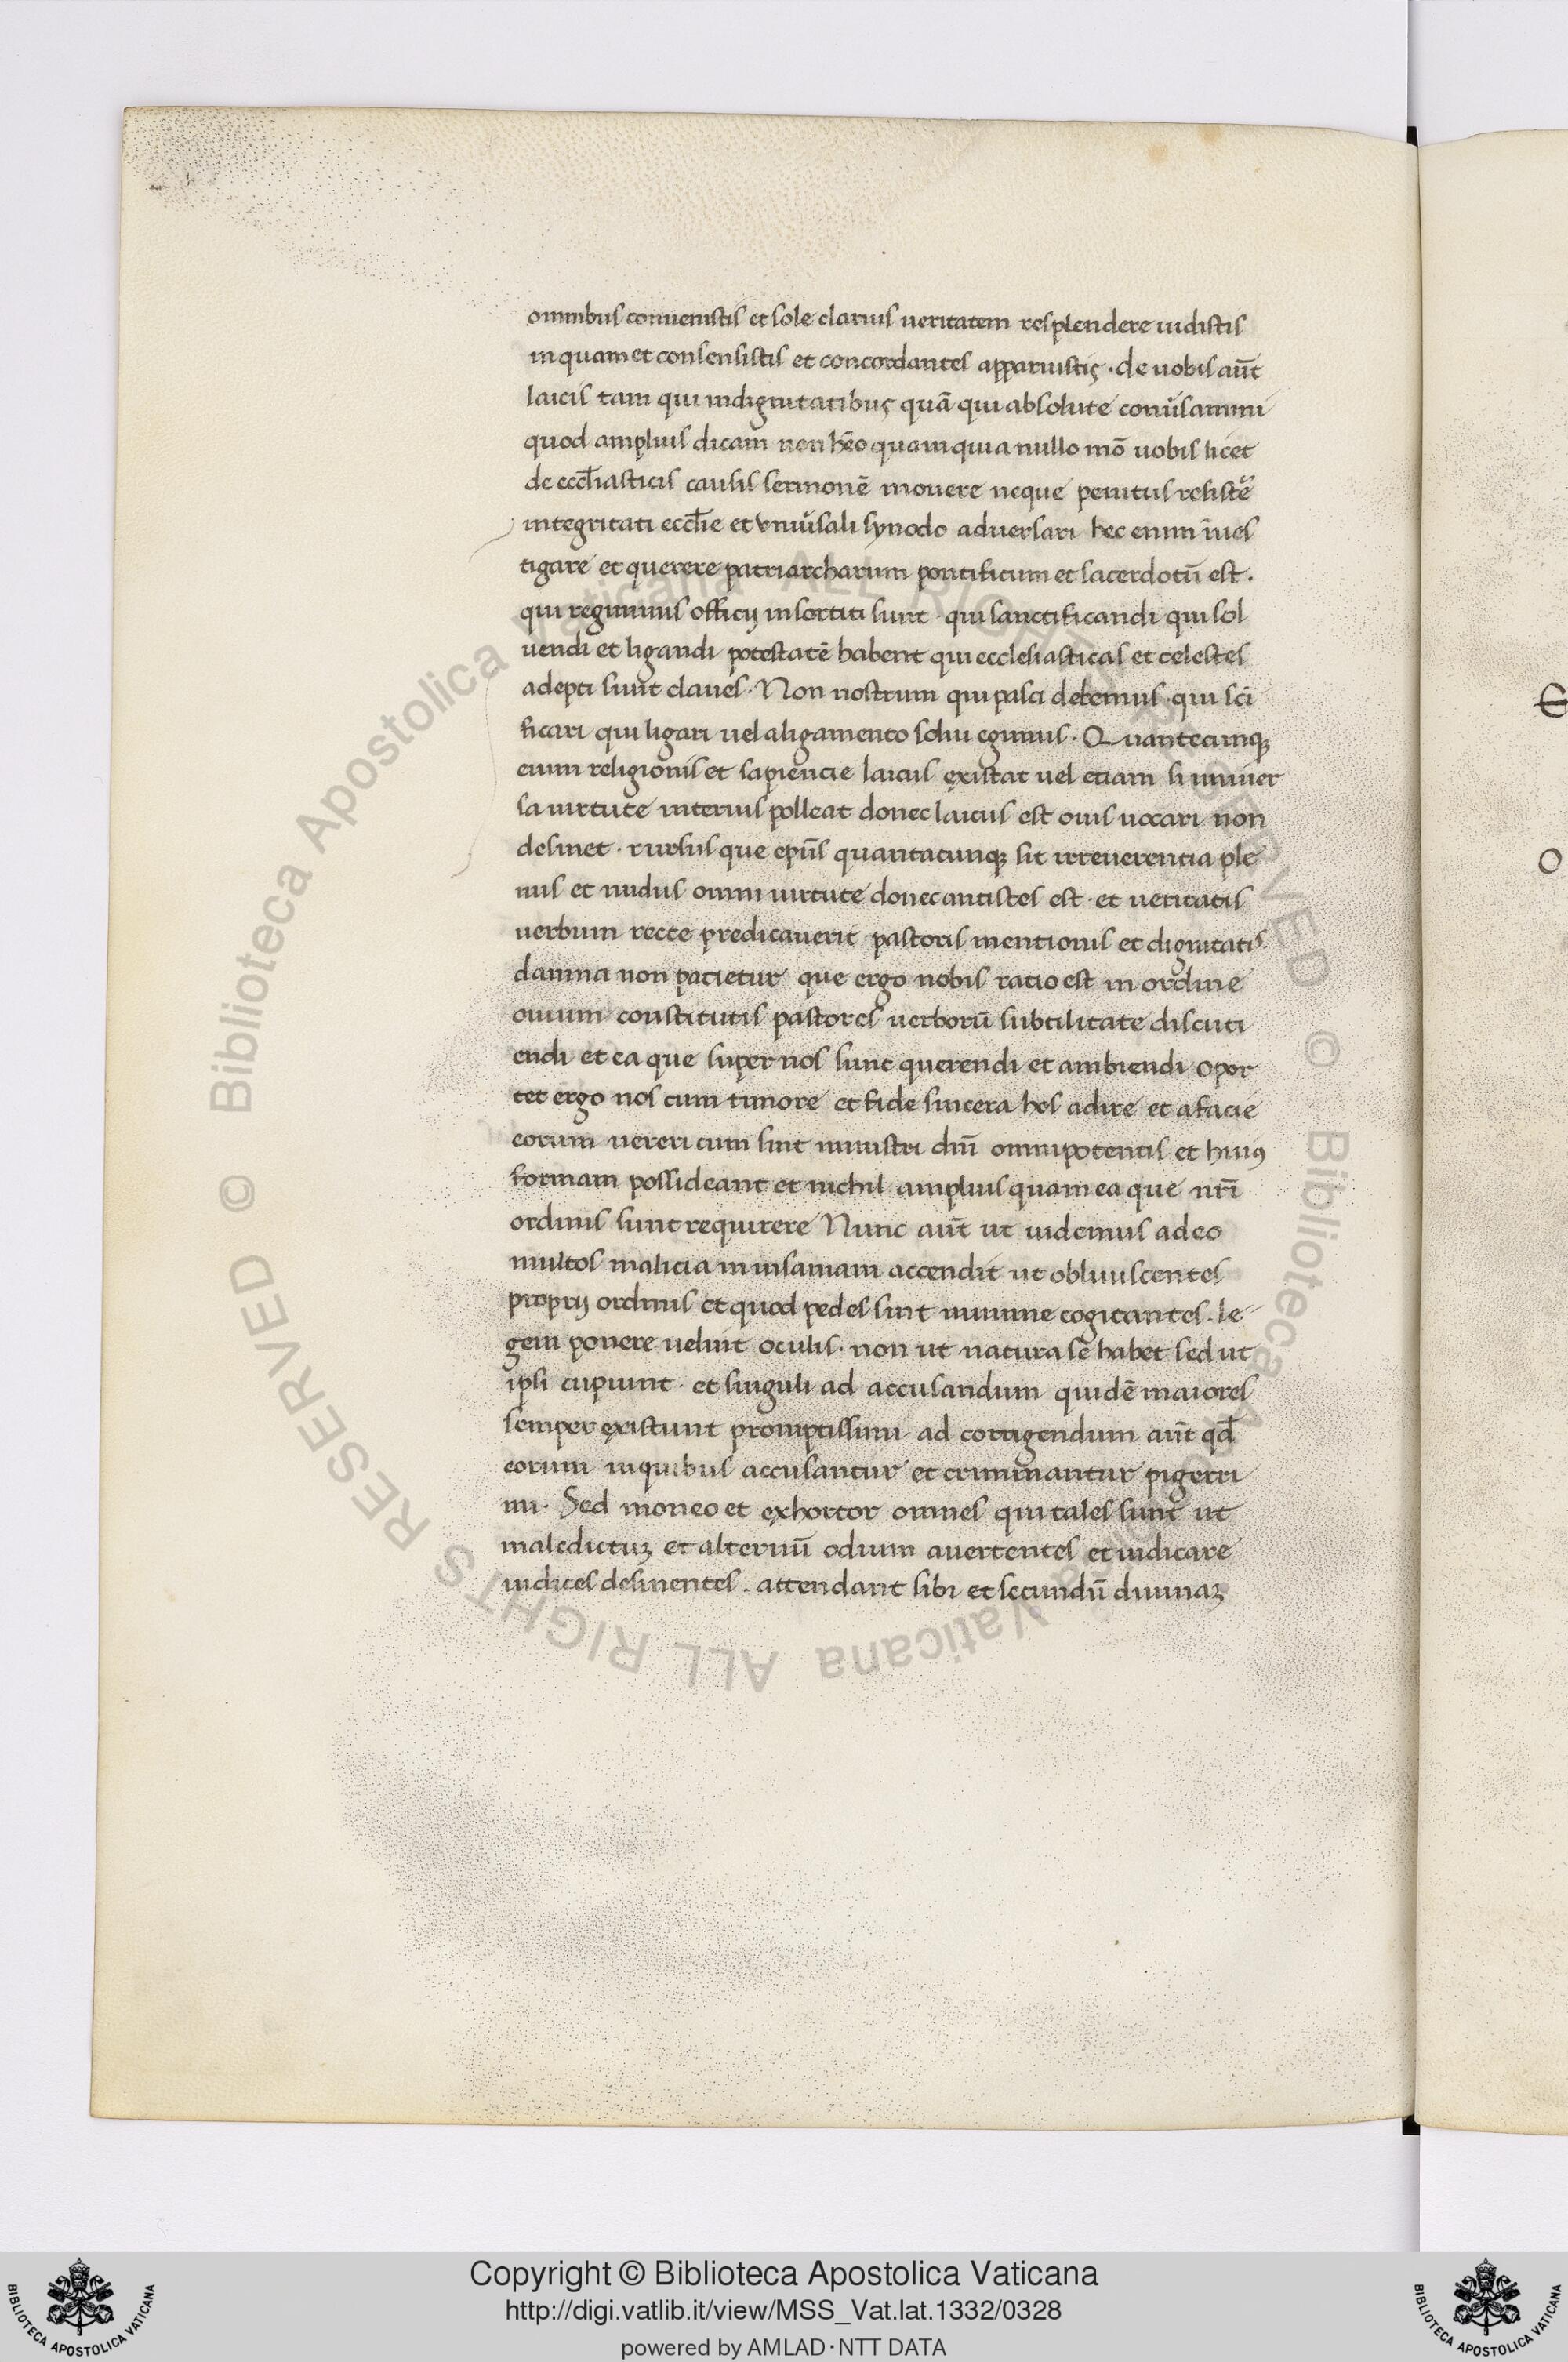 omnibus conuenistis et sole clarius ueritatem resplendere uidistis
in quam et consensistis et concordantes apparuistis · de uobis aūt
laicis tam qui in dignitatibus quā qui absolute conũsamini
quod amplius dicam non hēo quam quia nullo mō uobis licet
de eccl̄iasticis causis sermonē mouere neque penitus resistẽ
integritati eccl̄ie et vniũsali synodo aduersari hec enim īues
tigare et querere patriarcharum pontificum et sacerdotū est .
qui regiminis officij in sortiti sunt · qui sanctificandi qui sol
uendi et ligandi potestatē habent qui ecclesiasticas et celestes
adepti sunt claues · Non nostrum qui pasci debemus · qui sc̄i
ficari qui ligari uel a ligamento solui egimus · Quantecunqꝫ
enim religionis et sapiencie laicus existat uel etiam si uniuer
sa uirtute interius polleat donec laicus est ouis uocari non
desinet · rursus que ep̄us quantacunqꝫ sit irreuerentia ple
nus et nudus omni uirtute donec antistes est · et ueritatis
uerbum recte predicauerit · pastoris mentionis et dignitatis
damna non pacietur que ergo nobis ratio est in ordine
ouium constitutis pastores uerborū subtilitate discuti
endi et ea que super nos sunt querendi et ambiendi opor
tet ergo nos cum timore et fide sincera hos adire et a facie
eorum uereri cum sint ministri dn̄i omnipotentis et huius
formam possideant et nichil amplius quam ea que nr̄i
ordinis sunt requirere Nunc aūt ut uidemus adeo
multos malicia in insaniam accendit ut obliuiscentes
proprij ordinis et quod pedes sint minime cogitantes . le
gem ponere uelint oculis · non ut natura sē habet sed ut
ipsi cupiunt · et singuli ad accusandum quidē maiores
semper existunt promptissimi ad corrigendum aūt qd̄
eorum in quibus accusantur et criminantur pigerri
mi · Sed moneo et exhortor omnes qui tales sunt ut
maledictuꝫ et alternū odium auertentes et iudicare
iudices desinentes . attendant sibi et secundū diuinaꝫ
Copyright © Biblioteca Apostolica Vaticana
http://digi.vatlib.it/view/MSS_Vat.lat.1332/0328
powered by AMLAD·NTT DATA
© Biblioteca Apostolica Vaticana ALL RIGHTS RESERVED
© Biblioteca Apostolica Vaticana ALL RIGHTS RESERVED
BIBLIOTECA APOSTOLICA VATICANA
BIBLIOTECA APOSTOLICA VATICANA